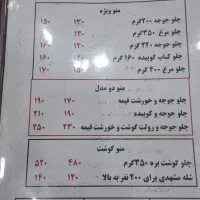 منو ویژه
چلو جوجه ۲۰۰گرم ۱۳۰ ۱۵۰
چلو مرغ ۳۵۰گرم ۱۳۰
چلو جوجه ۲۲۰ گرم ۱۴۰ ۱۶۰
چلو کباب کوبیده ۱۶۰گرم
چلو مرغ ۴۰۰گرم ۱۵۰ ۱۷۰
منو دو مدل
چلو جوجه و خورشت قیمه ۱۷۰ ۱۹۰
چلو جوجه و کوبیده ۱۹۰ ۲۱۰
چلو جوجه و رولت گوشت و خورشت قیمه ۲۳۰ ۲۵۰
منو گوشت
چلو گوشت بره ۳۵۰گرم ۴۸۰ ۵۲۰
شله مشهدی برای ۲۰۰ نفر به بالا ۱۲۰ ۱۴۰